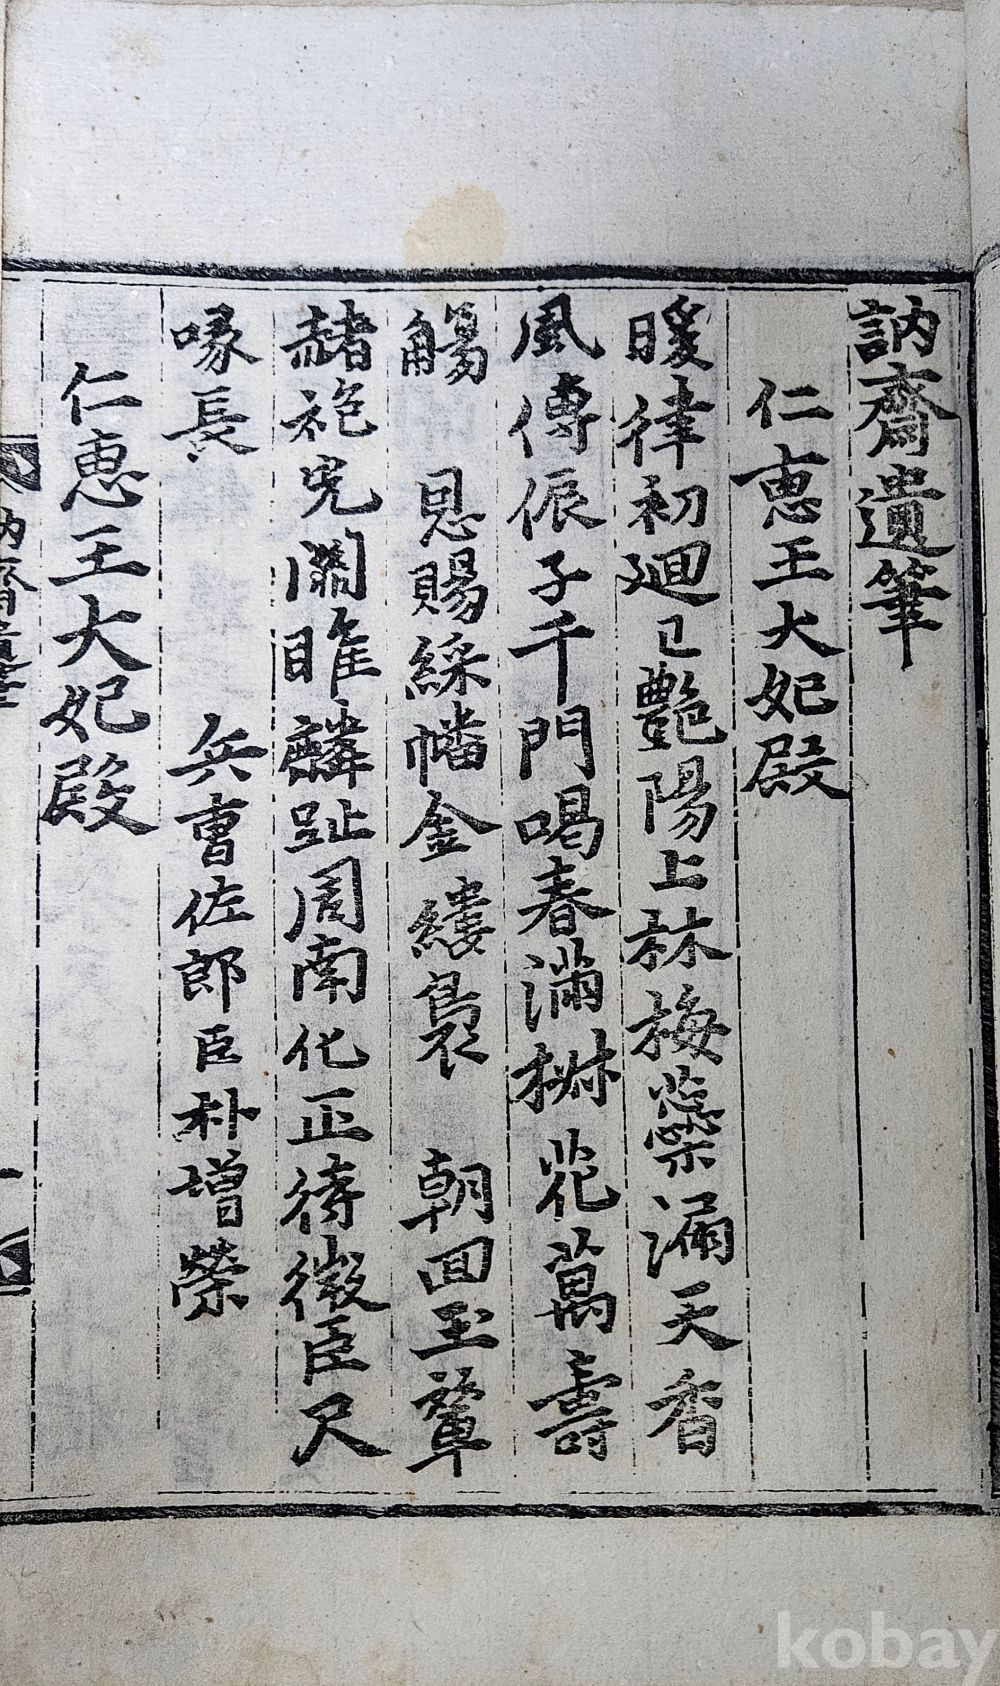 訥齋遺筆
仁惠王大妃殿
暖律初廻已艶陽上林梅蘂漏天香
風傳侲子千門喝春滿椒花萬壽
觴 恩賜綵幡金縷裊 朝回玉輦
赭袍光關睢麟趾周南化正待微臣尺
喙長 兵曹佐郎臣朴增榮
仁惠王大妃殿
訥齋遺筆
kobay